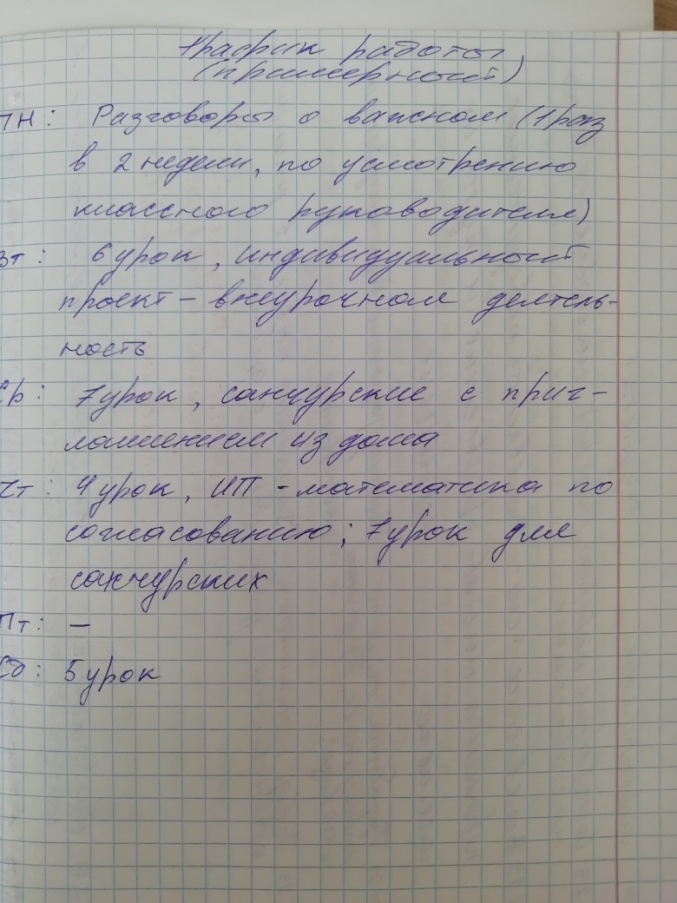 График работы
(примерный)
Пн: Разговоры о важном (1 раз
в 2 недели, по усмотрению
классного руководителя)
Вт: 6 урок, индивидуальный
проект - внеурочная деятель-
ность
Ср: 7 урок, санчурские с приг-
лашением из дома
Чт: 4 урок, ИП - математика по
согласованию; 7 урок для
санчурских
Пт: —
Сб: 5 урок